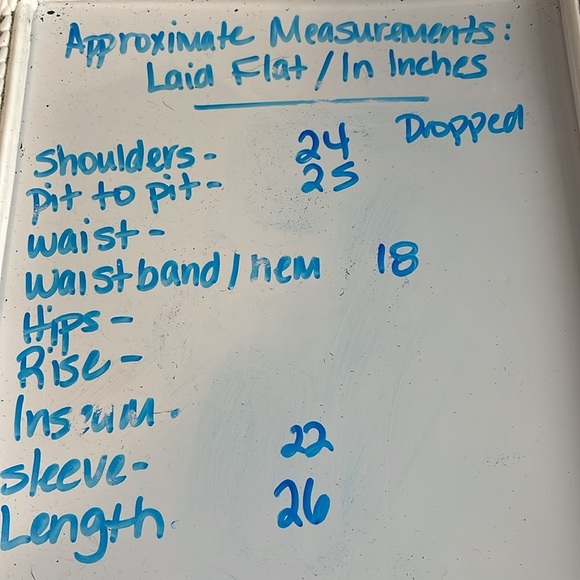 Approximate Measurements:
Laid Flat / In Inches
Shoulders - 24 Dropped
pit to pit - 25
waist -
waistband / hem 18
Hips -
Rise -
Sleeve - 22
Length 26